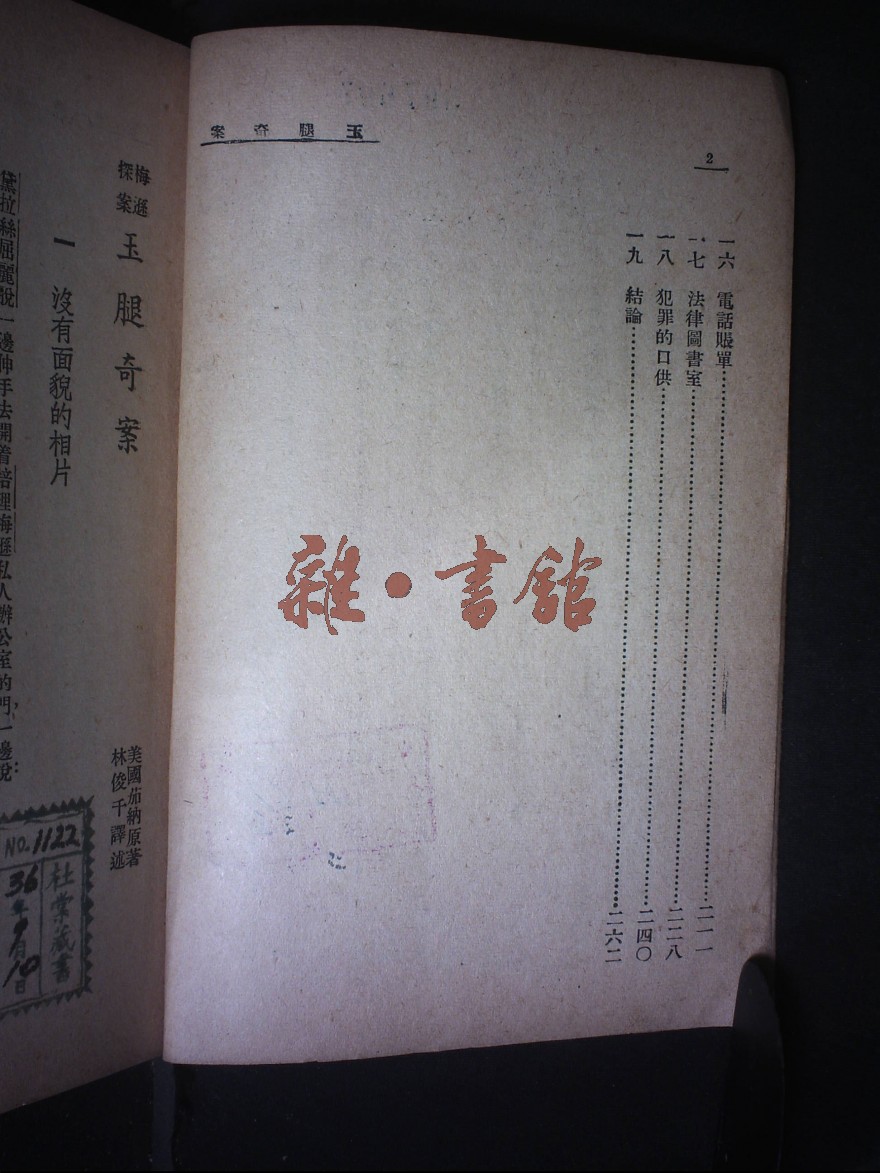 玉腿奇案
2
一六 電話賬單 二一一
一七 法律圖書室 二二八
一八 犯罪的口供 二四〇
一九 結論 二六二
雜·書館
梅遜探案 玉腿奇案
美國茄納原著
林俊千譯述
一 沒有面貌的相片
黛拉絲屈麗說一邊伸手去開着培理梅遜私人辦公室的門,一邊說:
NO.1122
杜棠藏書
36年9月10日